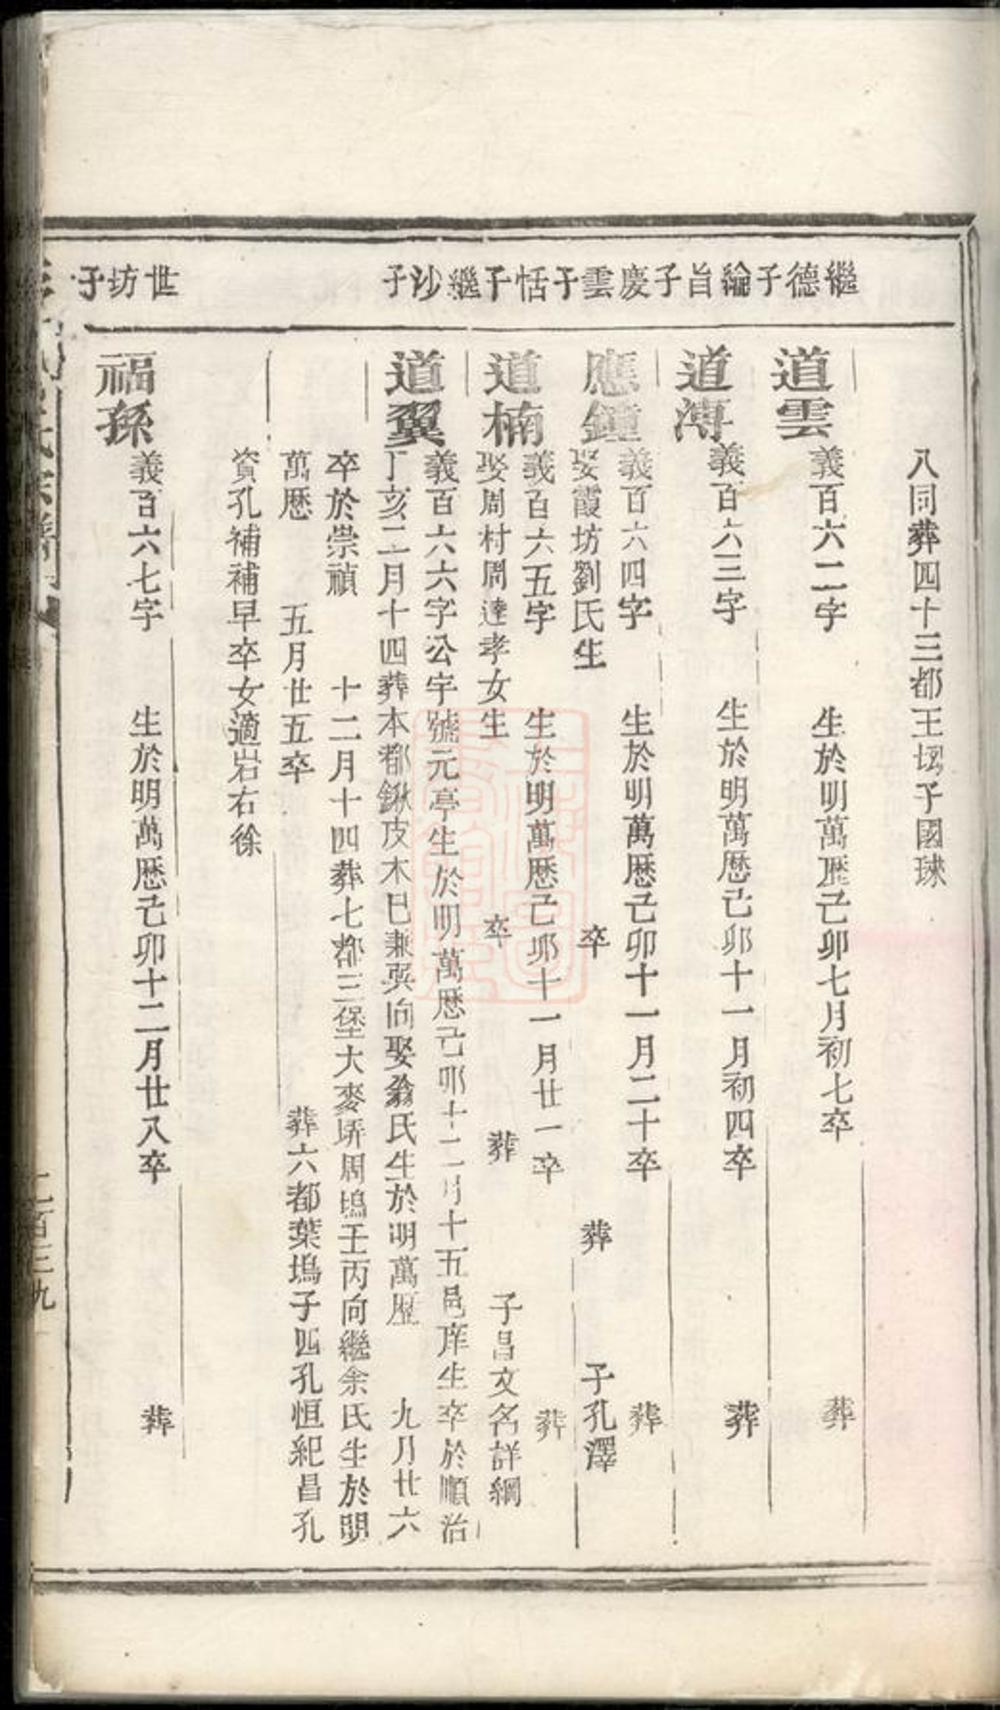 繼德子綸旨子慶雲子恬子繼沙子
世坊子
八同葬四十三都王塢子國球
道雲
義百六二字　生於明萬歷己卯七月初七卒　葬
道溥
義百六三字　生於明萬歷己卯十一月初四卒　葬
應鐘
義百六四字　生於明萬歷己卯十一月二十卒　葬
娶霞坊劉氏生　卒　葬　子孔澤
道楠
義百六五字　生於明萬歷己卯十一月廿一卒　葬
娶周村周達孝女生　卒　葬　子昌文名詳綱
道翼
義百六六字公宇號元亭生於明萬歷己卯十二月十五邑庠生卒於順治
丁亥二月十四葬本都鍬皮木巳兼巽向娶翁氏生於明萬歷　九月廿六
卒於崇禎　十二月十四葬七都三堡大麥塢周塢壬丙向繼余氏生於明
萬歷　五月廿五卒　葬六都葉塢子四孔恒紀昌孔
資孔補補早卒女適岩右徐
福孫
義百六七字　生於明萬歷己卯十二月廿八卒　葬
二百三九